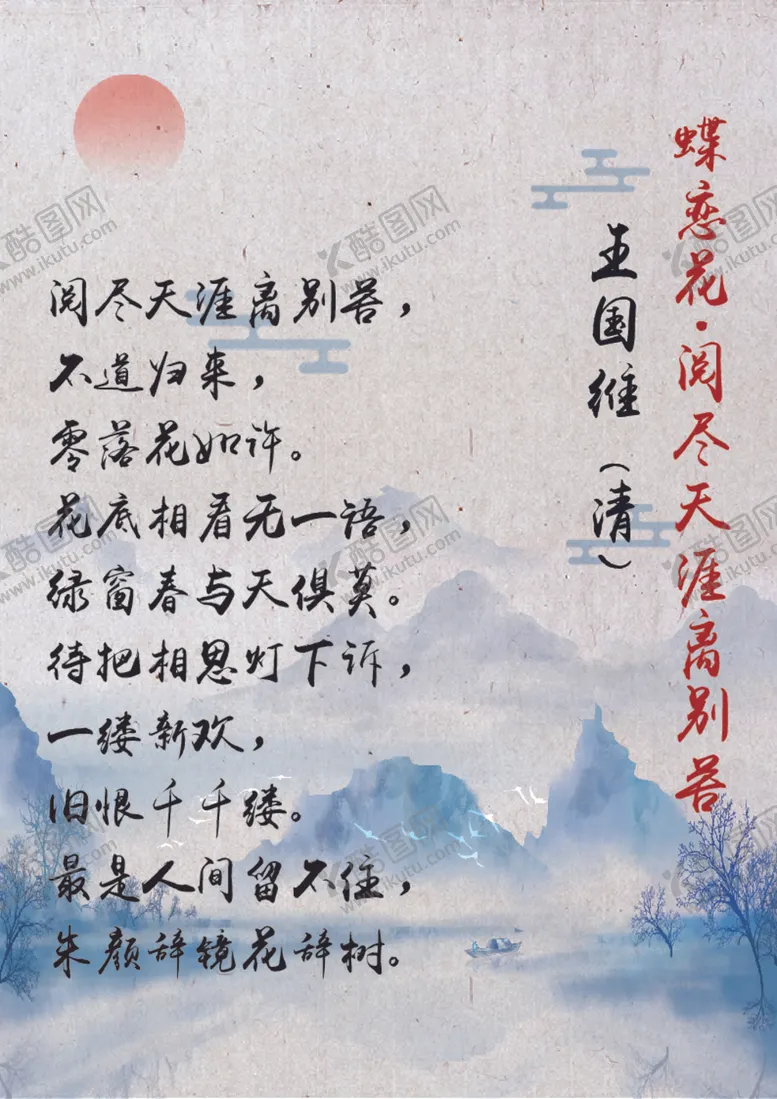 蝶恋花·阅尽天涯离别苦
王国维（清）
阅尽天涯离别苦，
不道归来，
零落花如许。
花底相看无一语，
绿窗春与天俱莫。
待把相思灯下诉，
一缕新欢，
旧恨千千缕。
最是人间留不住，
朱颜辞镜花辞树。
酷图网
www.ikutu.com